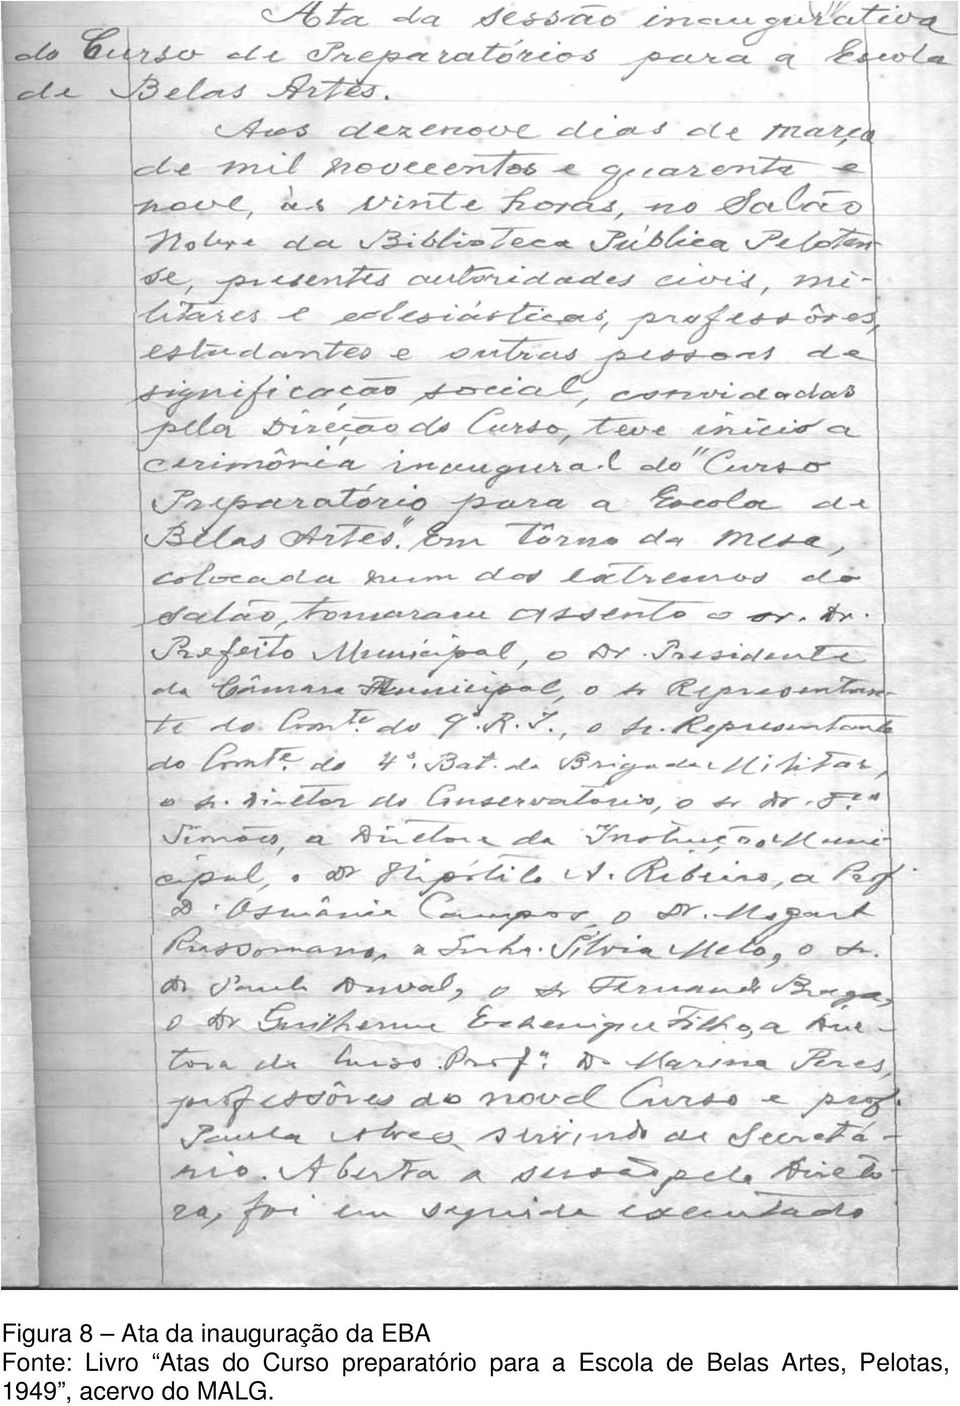 Ata da sessão inaugurativa
do Curso de Preparatórios para a Escola
de Belas Artes.
Aos dezenove dias de março
de mil novecentos e quarenta e
nove, às vinte horas, no Salão
Nobre da Biblioteca Pública Peloten-
se, presentes autoridades civis, mi-
litares e eclesiásticas, professôres,
estudantes e outras pessoas de
significação social, convidadas
pela Direção do Curso, teve início a
cerimônia inaugural do "Curso
Preparatório para a Escola de
Belas Artes". Em tôrno da mesa,
colocada num dos extremos do
salão, tomaram assento o sr. Dr.
Prefeito Municipal, o Dr. Presidente
da Câmara Municipal, o sr Representan-
te do Comte. do 9º. R. I., o sr. Representante
do Comte. do 4º. Bat. da Brigada Militar,
o sr. Diretor do Conservatorio, o sr Dr. Fco
Simões, a Diretora da Instrução Muni-
cipal, o Dr Hipólito A. Ribeiro, a Prof.
D. Osmânia Campos, o Dr. Mozart
Russomano, a Snha. Sílvia Melo, o sr.
Dr. Paulo Duval, o sr Fernando Braga,
o Dr Guilherme Echenique Filho, a Dire-
tora do Curso Profa. Da Marina Pires,
professôres do novel Curso e prof.
Paula Alves servindo de Secretá-
rio. Aberta a sessão pela Direto-
ra, foi em seguida executado
Figura 8 – Ata da inauguração da EBA
Fonte: Livro “Atas do Curso preparatório para a Escola de Belas Artes, Pelotas,
1949”, acervo do MALG.